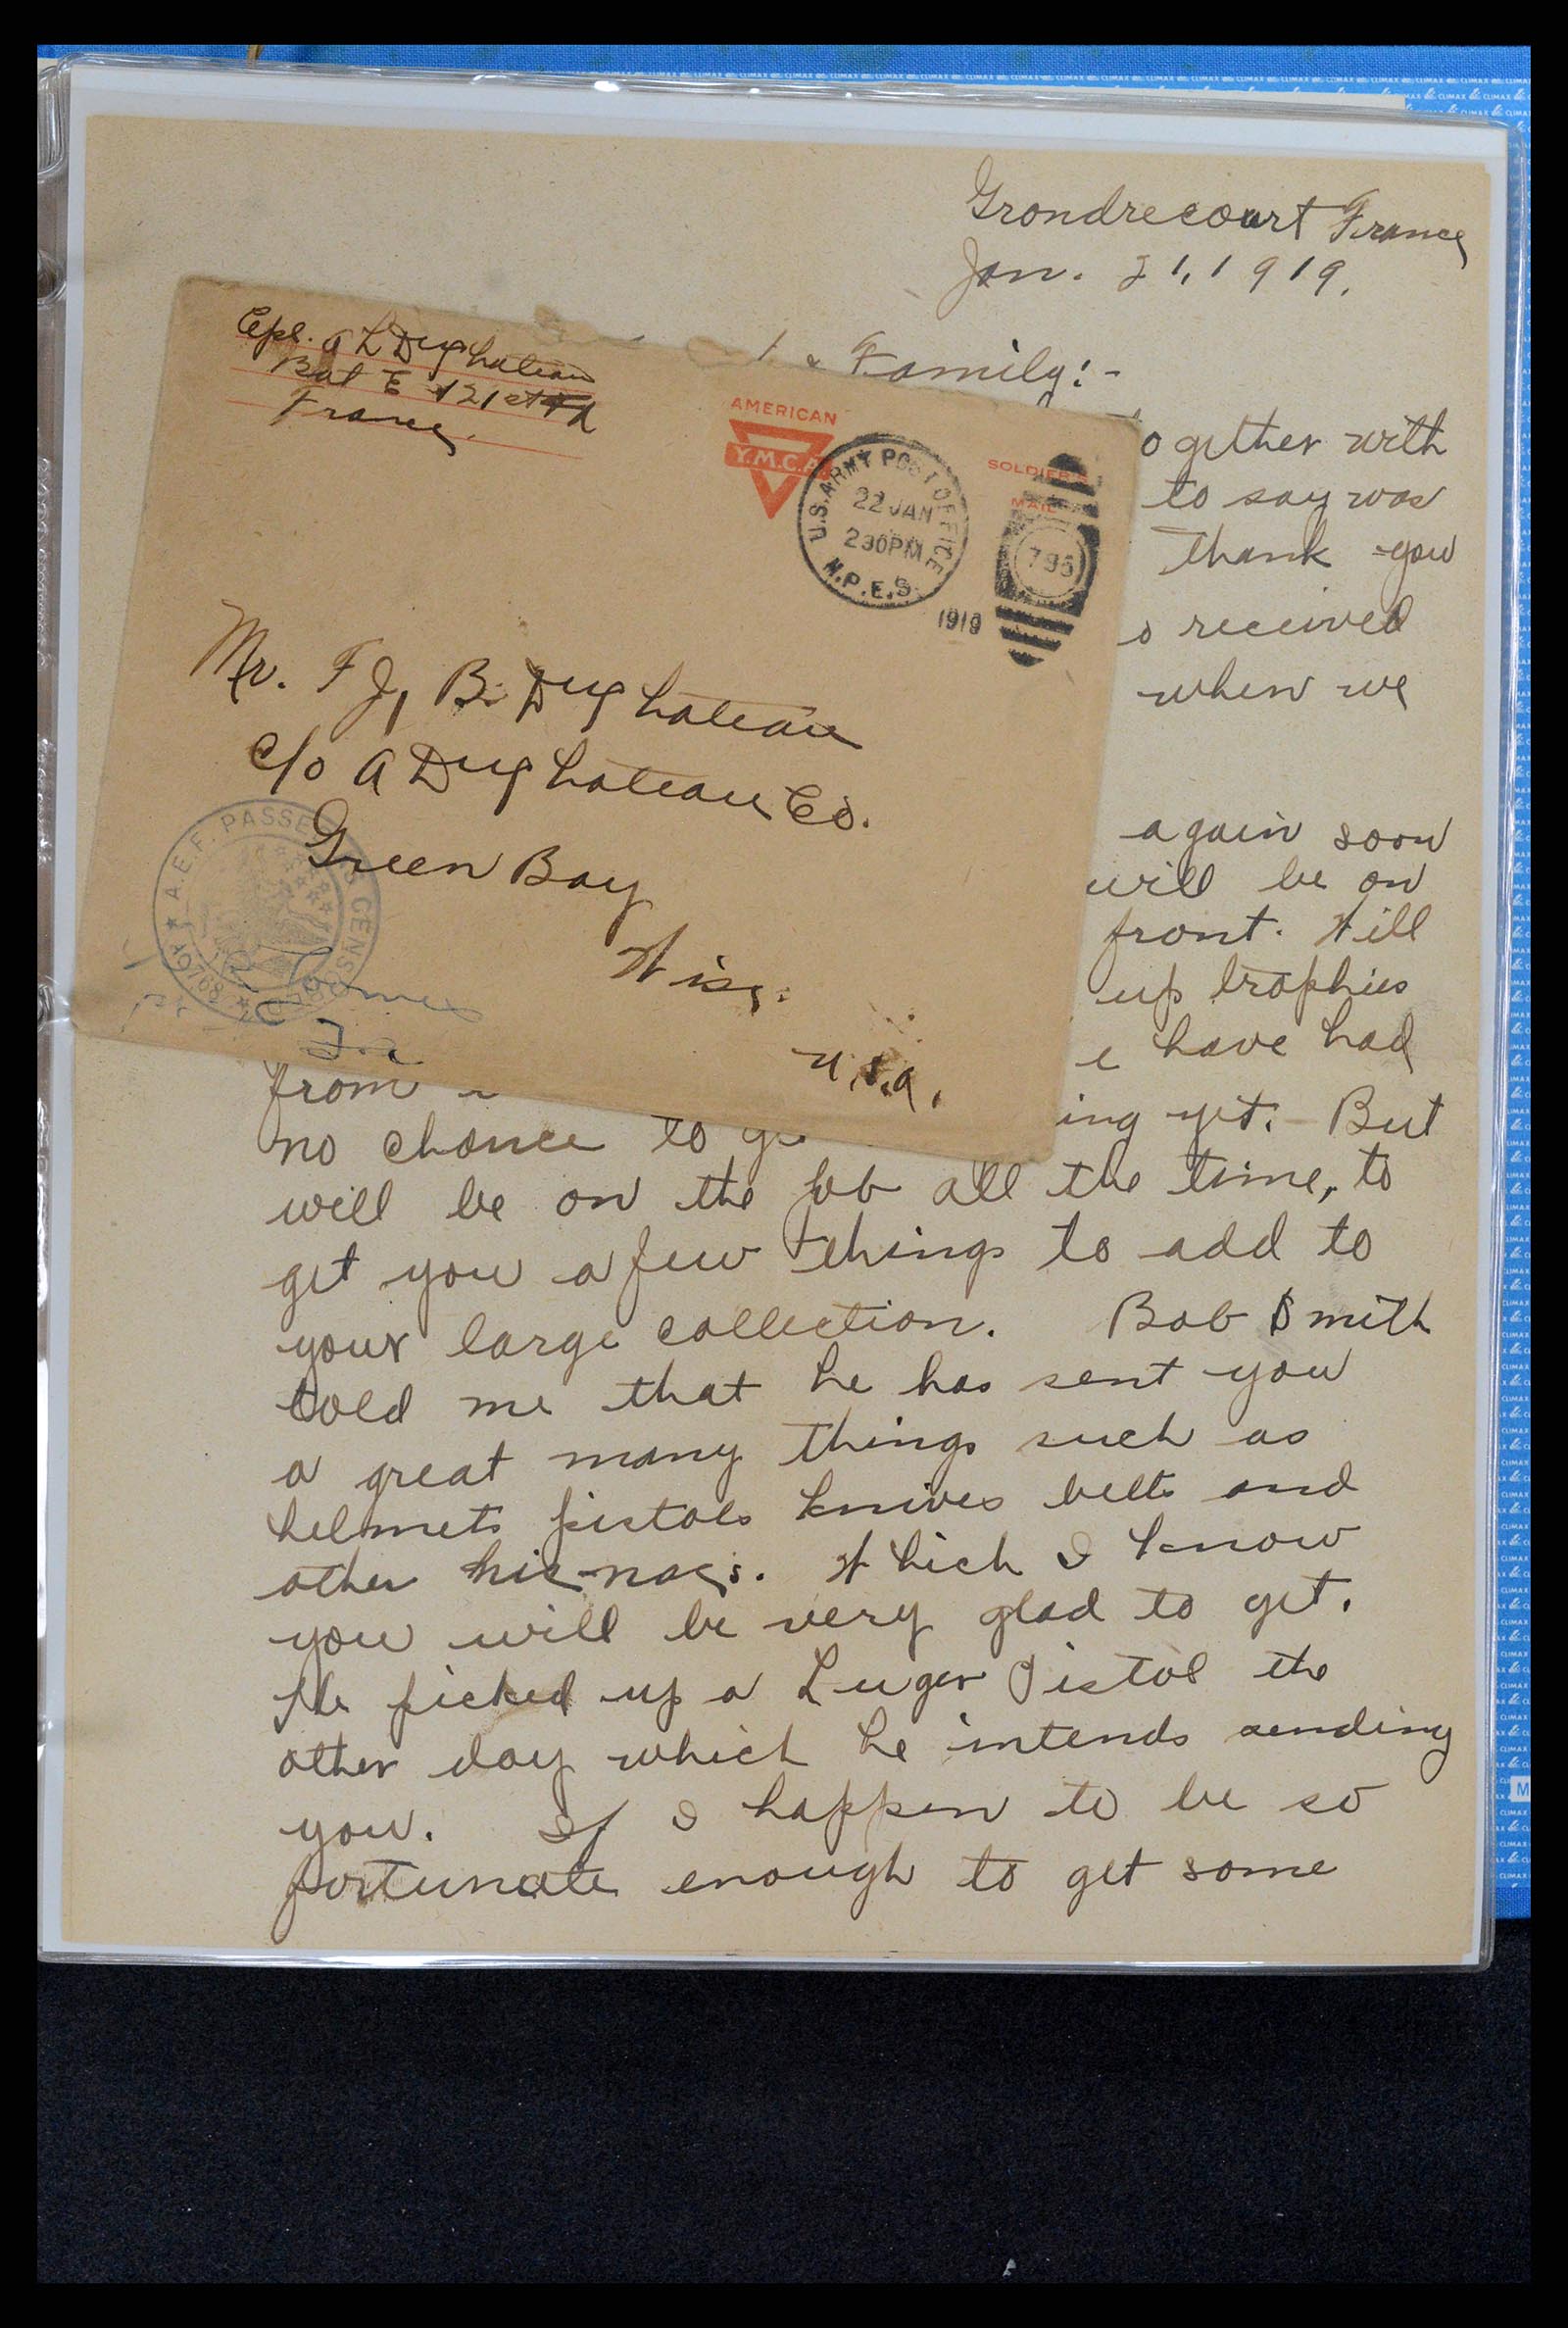 Grondrecourt France
Jan. 21, 1919.
& Family:-
ogether with
to say was
thank you
received
when we
again soon
will be on
front. Will
up trophies
have had
from
no chance to g ing yet. But
will be on the job all the time, to
get you a few things to add to
your large collection. Bob Smith
told me that he has sent you
a great many things such as
helmets pistols knives belts and
other nic-nacs. Which I know
you will be very glad to get.
He picked up a Luger Pistol the
other day which he intends sending
you. If I happen to be so
fortunate enough to get some
Cpl. A L Duchateau
Bat E 121st FA
France
AMERICAN
Y.M.C.A.
SOLDIER'S
MAIL
U.S. ARMY POST OFFICE
22 JAN
230PM
M.P.E.S.
1919
795
Mr. F J, B. Duchateau
c/o A Duchateau Co.
Green Bay
Wisc.
U.S.A.
A.E.F. PASSED AS CENSORED
CLIMAX